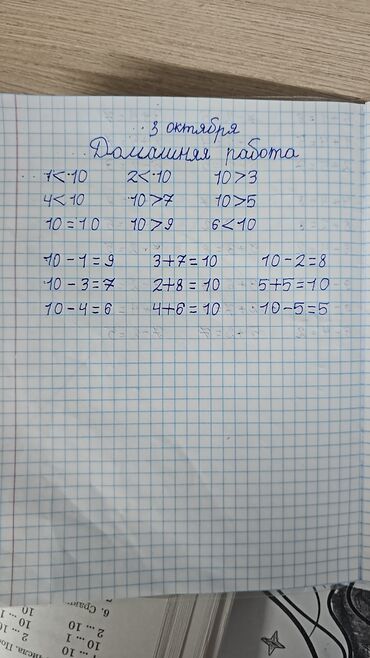 3 октября
Домашняя работа
1<10 2<10 10>3
4<10 10>7 10>5
10=10 10>9 6<10
10-1=9 3+7=10 10-2=8
10-3=7 2+8=10 5+5=10
10-4=6 4+6=10 10-5=5
6. Срав
2 ... 10
10 ... 1
10 ...
10